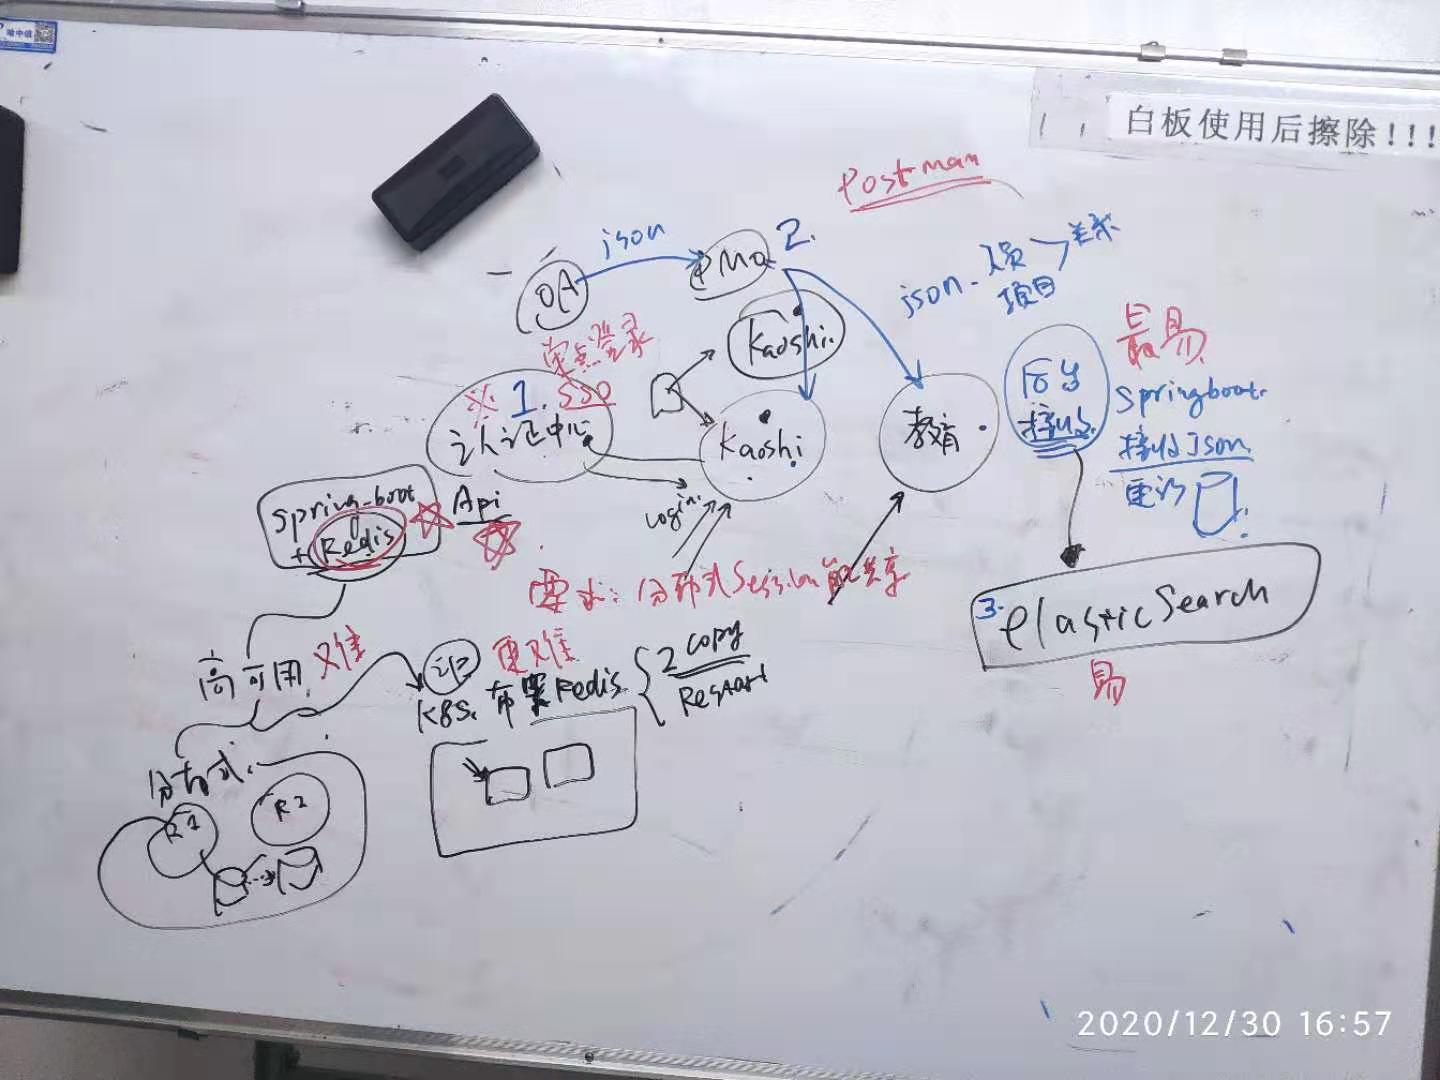 哈中信
白板使用后擦除!!!
Postman
json
OA
PMO
2.
json.
人员
关系
项目
Kaoshi.
单点登录
※ 1. SSO
认证中心
Kaoshi
教育
后台
接收
最易
springboot.
接收Json
更新
spring-boot
+ Redis
Api
login
要求: 分布式Session能共享
3. elasticSearch
易
高可用
又难
更难
K8S. 布署Redis
2 copy
Restart
分布式.
R1
R2
2020/12/30 16:57